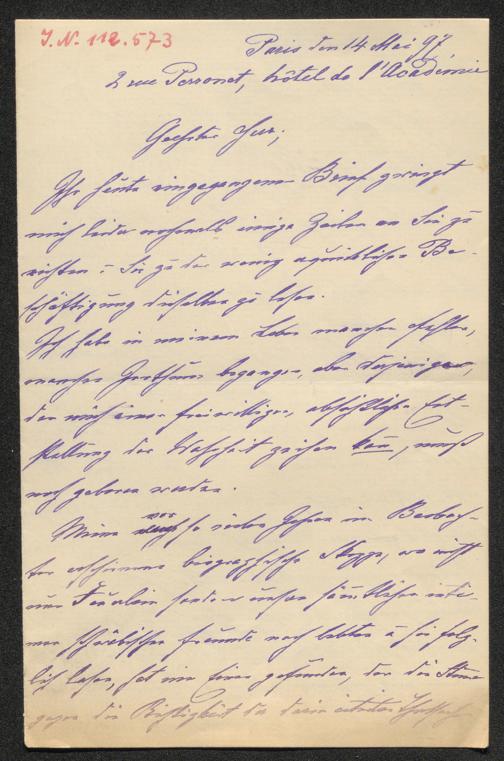 J.N. 112.573
Paris den 14 Mai 97,
2 rue Perronet, hôtel de l'Académie
Geehrter Herr,
Ihr heute eingegangener Brief zwingt
mich leider nochmals einige Zeilen an Sie zu
richten – Sie zu der wenig erquicklichen Be-
schäftigung dieselben zu lesen.
Ich habe in meinem Leben manchen Fehler,
manchen Irrthum begangen, aber derjenige,
der mich einer freiwilligen, absichtlichen Ent-
stellung der Wahrheit zeihen kann, muß
noch geboren werden.
Meine vor so vielen Jahren im Beobach-
ter erschienene biographische Skizze, wo nicht
nur Fräulein sondern unsere sämtlichen inti-
men schwäbischen Freunde noch lebten & sie folg-
lich lasen, hat nie einen gefunden, der die Stimme
gegen die Richtigkeit der darin